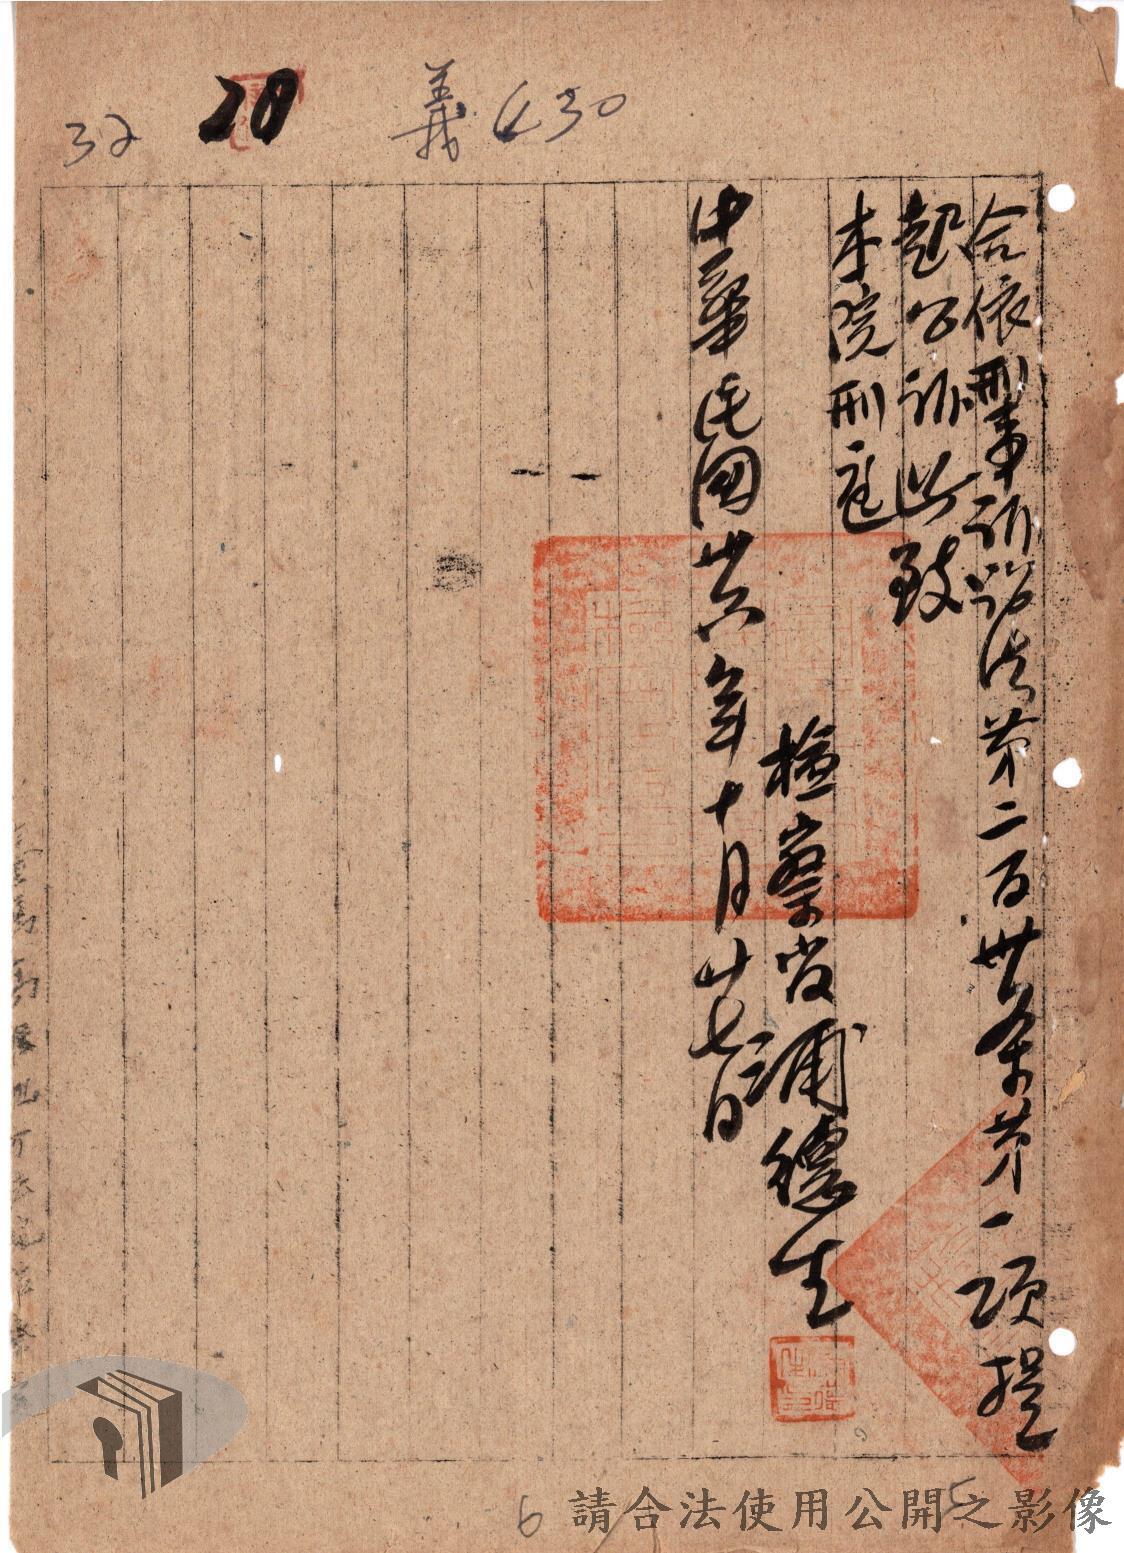 32
20
義430
合依刑事訴訟法第二百卅条第一項提
起公訴此致
本院刑庭
檢察官浦德生
中華民國卅六年十月廿七日
6
5
請合法使用公開之影像